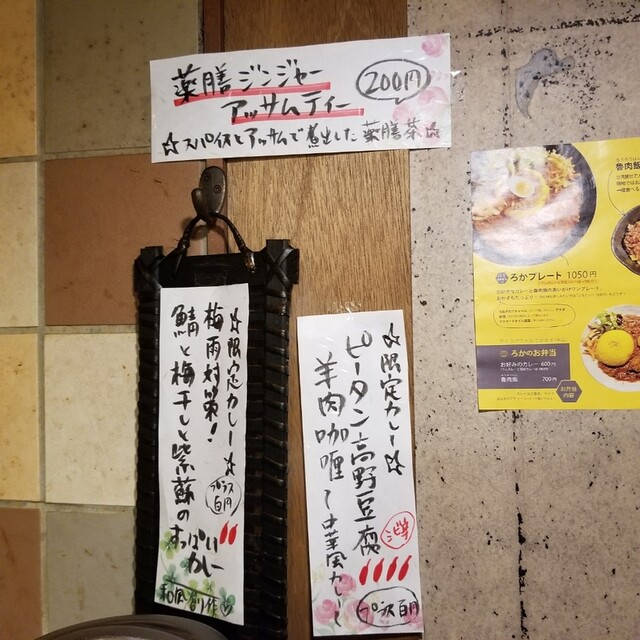 薬膳ジンジャー
アッサムティー
200円
☆スパイスとアッサムで煮出した薬膳茶☆
☆限定カレー☆
梅雨対策!
鯖と梅干しと紫蘇の
すっぱい
カレー
プラス
百円
和風創作
☆限定カレー☆
ピータン高野豆腐
羊肉咖喱~中華風カレー
プラス百円
魯肉飯
ろかプレート 1050円
ろかのお弁当
お好みのカレー 600円
魯肉飯 700円
お弁当
内容